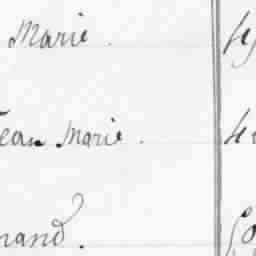 Marie.
Jean Marie.
nand.